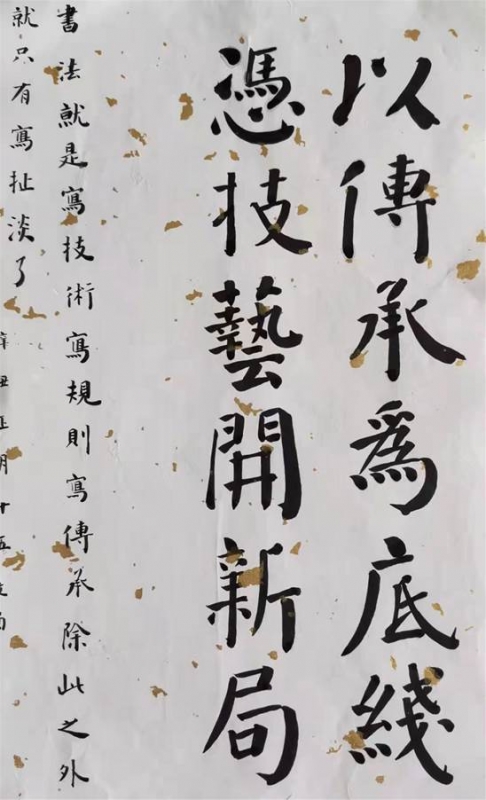 以傳承爲底綫
憑技藝開新局
書法就是寫技術寫規則寫傳承除此之外
就只有寫扯淡了
辛丑正月十五